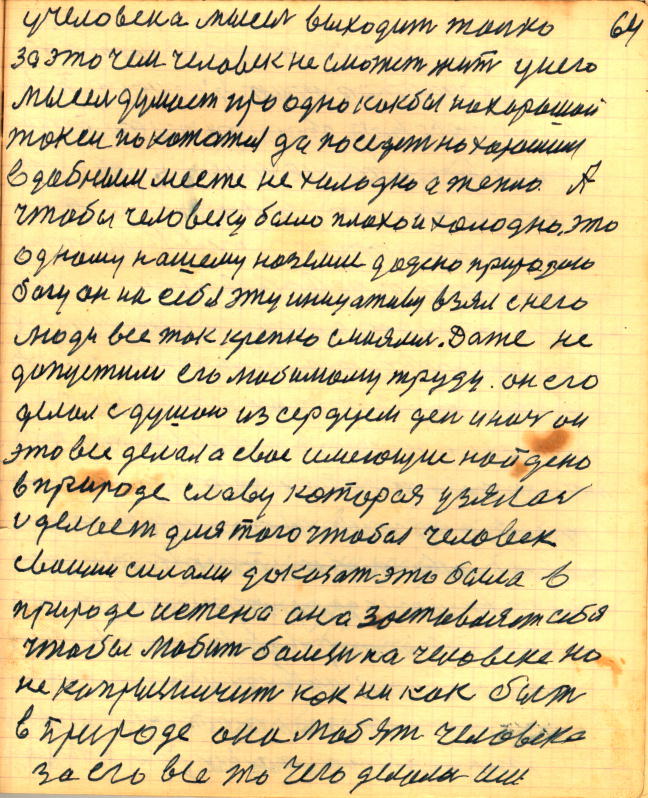 учеловека мысел выходит толко 64
за это чем человек не сможет жит унего
мысел думает про одно какбы нахорошой
такси покататся да поседет на хорошим
вдобным месте не хилодно а тепло. А
чтобы человеку было плохо и холодно, это
одному нашему на земли дадено природою
богу он на себя эту инициативу взял с него
люди все так крепко смиялис. Даже не
допустили его любимому труду. он его
делал с душою из сердцем ден и ноч он
это все делал а свое имеющие найдено
в природе славу которая узялас
и делает для того чтобы человек
своими силами доказат это была в
природе истена она заставляет себя
чтобы любит болезн на человеке но
не каприничит как никак быт
в природе она любят человека
за его все то чего делали или